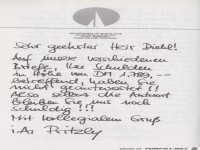 Sehr geehrter Herr Diehl!
Auf unsere verschiedenen
Briefe, Ihre Schulden
in Höhe von DM 1.789,--
betreffend, haben Sie
nicht geantwortet!!
Also selbst die Antwort
bleiben Sie uns noch
schuldig!!!
Mit kollegialem Gruß
i.A. Pitzly